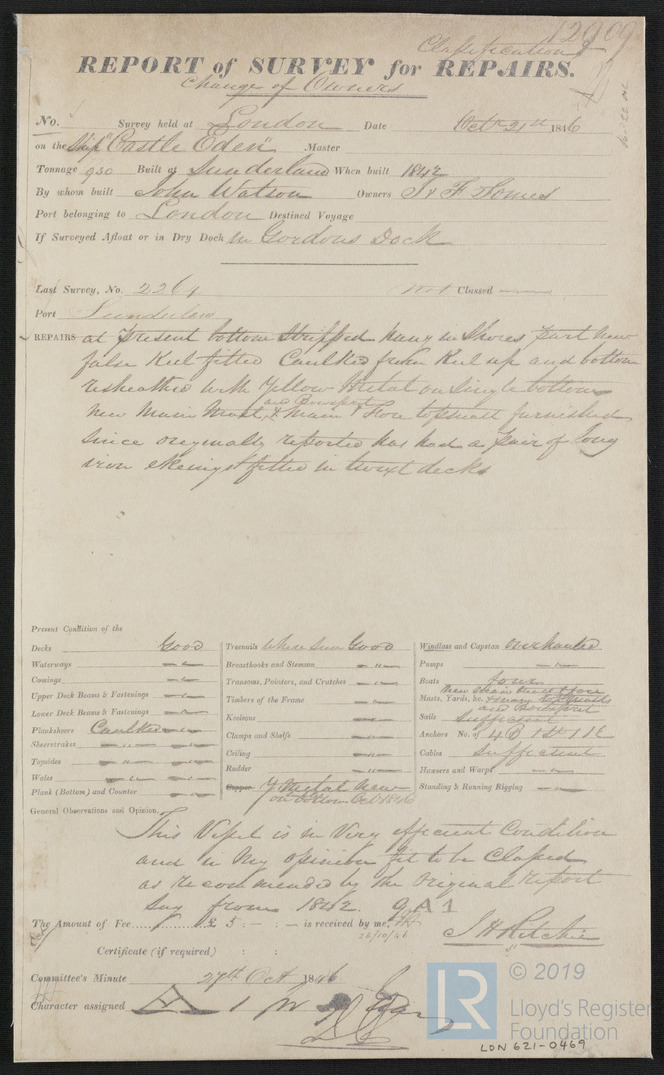 12909
Classification &
REPORT of SURVEY for REPAIRS.
Change of Owners
No. Survey held at London Date Octr 21st 1846
on the Ship "Castle Eden" Master
Tonnage 930 Built at Sunderland When built 1842
By whom built John Watson Owners J & F Somes
Port belonging to London Destined Voyage
If Surveyed Afloat or in Dry Dock in Gordons Dock
Last Survey, No. 2264 not Classed
Port Sunderland
REPAIRS at present bottom stripped hung in Shores part new
false Keel fitted Caulked from Keel up and bottom
resheathed with Yellow Metal on single bottom
new Main Mast, and Bowsprit & Main & Fore topmast furnished
Since originally reported has had a pair of long
iron fitted in twixt decks
Present Condition of the
Decks Good
Waterways
Comings
Upper Deck Beams & Fastenings
Lower Deck Beams & Fastenings
Plansheers Caulked
Sheerstrakes
Topsides
Wales
Plank (Bottom) and Counter
Treenails where seen Good
Breasthooks and Stemson
Transoms, Pointers, and Crutches
Timbers of the Frame
Keelsons
Clamps and Shelfs
Ceiling
Rudder
Copper Y Metal New
on bottom Oct 1846
Windlass and Capstan overhauled
Pumps
Boats four
New Main Mast & fore
Masts, Yards, &c. & Main topmasts
and Bowsprit
Sails Sufficient
Anchors No. of 4 B 1 St 1 K
Cables Sufficient
Hawsers and Warps
Standing & Running Rigging
General Observations and Opinion.
This Vessel is in Very efficient Condition
and in My opinion fit to be Classed
as recommended by the Original report
Say from 1842. 9 A1
The Amount of Fee £ 5 : - : - is received by me, J H Ritchie
26/10/46
Certificate (if required) : :
Committee's Minute 27th Oct 1846
Character assigned A 1
© 2019
LR
Lloyd's Register
Foundation
LDN 621-0469